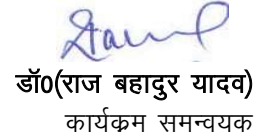 डॉ0(राज बहादुर यादव)
कार्यक्रम समन्वयक